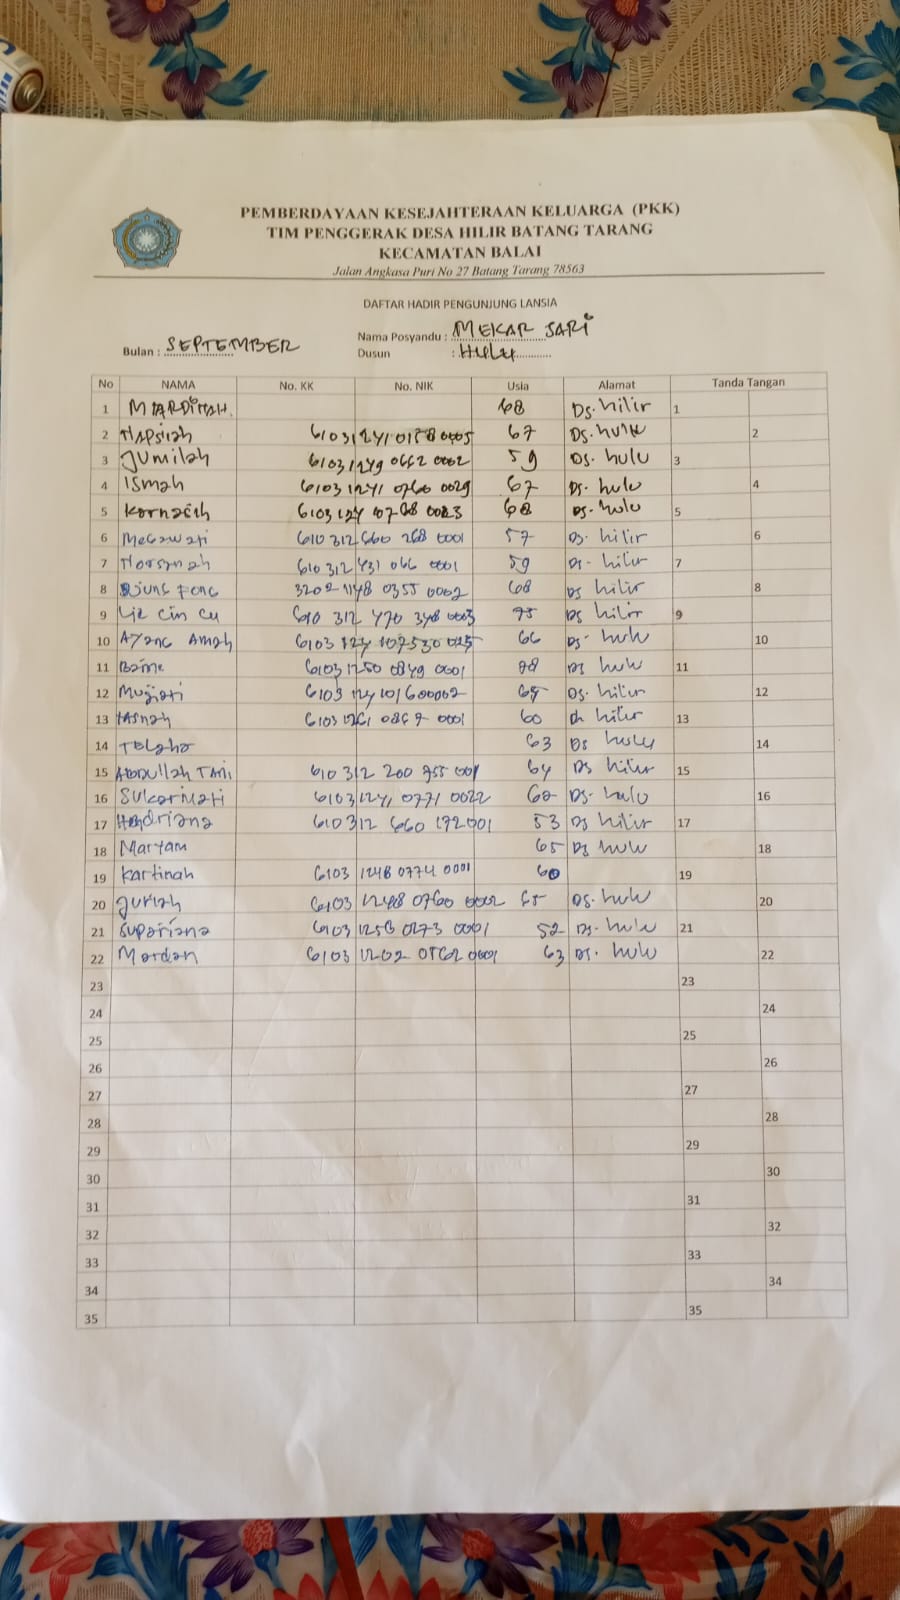 PEMBERDAYAAN KESEJAHTERAAN KELUARGA (PKK)
TIM PENGGERAK DESA HILIR BATANG TARANG
KECAMATAN BALAI
Jalan Angkasa Puri No 27 Batang Tarang 78563
DAFTAR HADIR PENGUNJUNG LANSIA
Bulan : SEPTEMBER
Nama Posyandu : MEKAR SARI
Dusun : Hulu
No NAMA No. KK No. NIK Usia Alamat Tanda Tangan
1 MARDIYAH. 68 Ds. hilir 1
2 Hapsiah 67 Ds. hulu 2
3 Jumilah 59 Ds. hulu 3
4 Ismah 6103 1241 0760 0029 67 Ds. hulu 4
5 68 Ds. hulu 5
6 Megawati 610 312 660 268 0001 57 Ds. hilir 6
7 610 312 431 066 0001 59 Ds. hilir 7
8 0355 0002 68 Ds hilir 8
9 Lie Cin Cu 610 312 470 348 0003 75 Ds hilir 9
10 Ayang Amah 66 Ds. hulu 10
11 6103 1250 0849 0001 Ds hulu 11
12 Mujiati 6103 124 101600002 Ds. hilir 12
13 Hasnah 6103 1261 0001 60 hilir 13
14 63 Ds hulu 14
15 Abdullah Tani 610 312 200 64 Ds hilir 15
16 Sukarmati 6103 1241 0771 0022 62 Ds. hulu 16
17 Hendriana 610312 660 172001 53 Ds hilir 17
18 Maryam 65 Ds hulu 18
19 Kartinah 6103 1248 0774 0001 60 19
20 Juriah 6103 1248 0760 0002 65 Ds. hulu 20
21 Supariana 6103 1256 0273 0001 52 Ds. hulu 21
22 Mardan 6103 1202 0562 0001 63 Ds. hulu 22
23 23
24 24
25 25
26 26
27 27
28 28
29 29
30 30
31 31
32 32
33 33
34 34
35 35